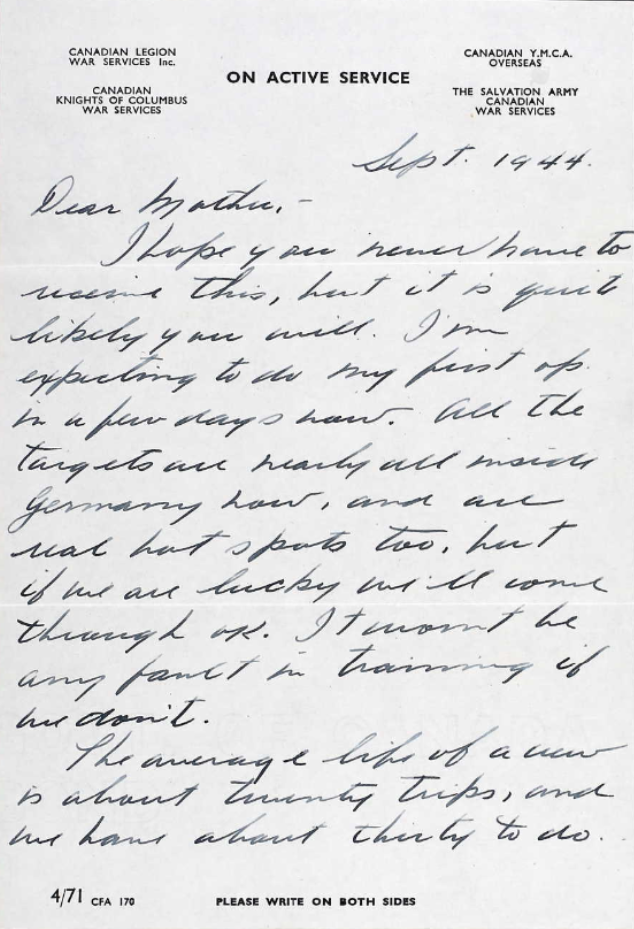 CANADIAN LEGION
WAR SERVICES Inc.
CANADIAN
KNIGHTS OF COLUMBUS
WAR SERVICES
ON ACTIVE SERVICE
CANADIAN Y.M.C.A.
OVERSEAS
THE SALVATION ARMY
CANADIAN
WAR SERVICES
Sept. 1944.
Dear Mother,-
I hope you never have to
receive this, but it is quite
likely you will. I'm
expecting to do my first op.
in a few days now. All the
targets are nearly all inside
Germany now, and are
real hot spots too, but
if we are lucky we'll come
through ok. It won't be
any fault in training if
we don't.
The average life of a crew
is about twenty trips, and
we have about thirty to do.
4/71 CFA 170
PLEASE WRITE ON BOTH SIDES